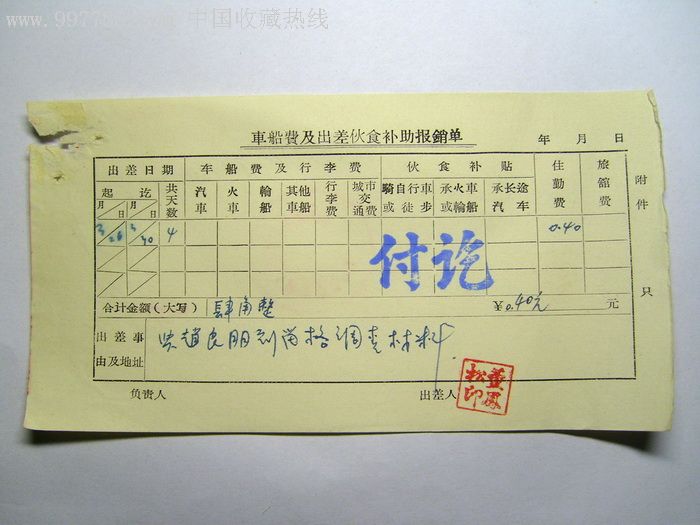 中国收藏热线
車船費及出差伙食补助报銷单
年 月 日
出差日期 车船费及行李费 伙食补贴 住勤費 旅館費
起 迄 共天数 汽車 火車 輪船 其他車船 行李费 城市交通費 騎自行車或徒步 承火車或輪船 承长途汽车
月 日 月 日
3 26 3 30 4 0.40
付讫
附件 只
合计金額(大写) 肆角整 ¥0.40元 元
出差事由及地址 赵良朋到 格调查材料
負責人 出差人 董凤松印